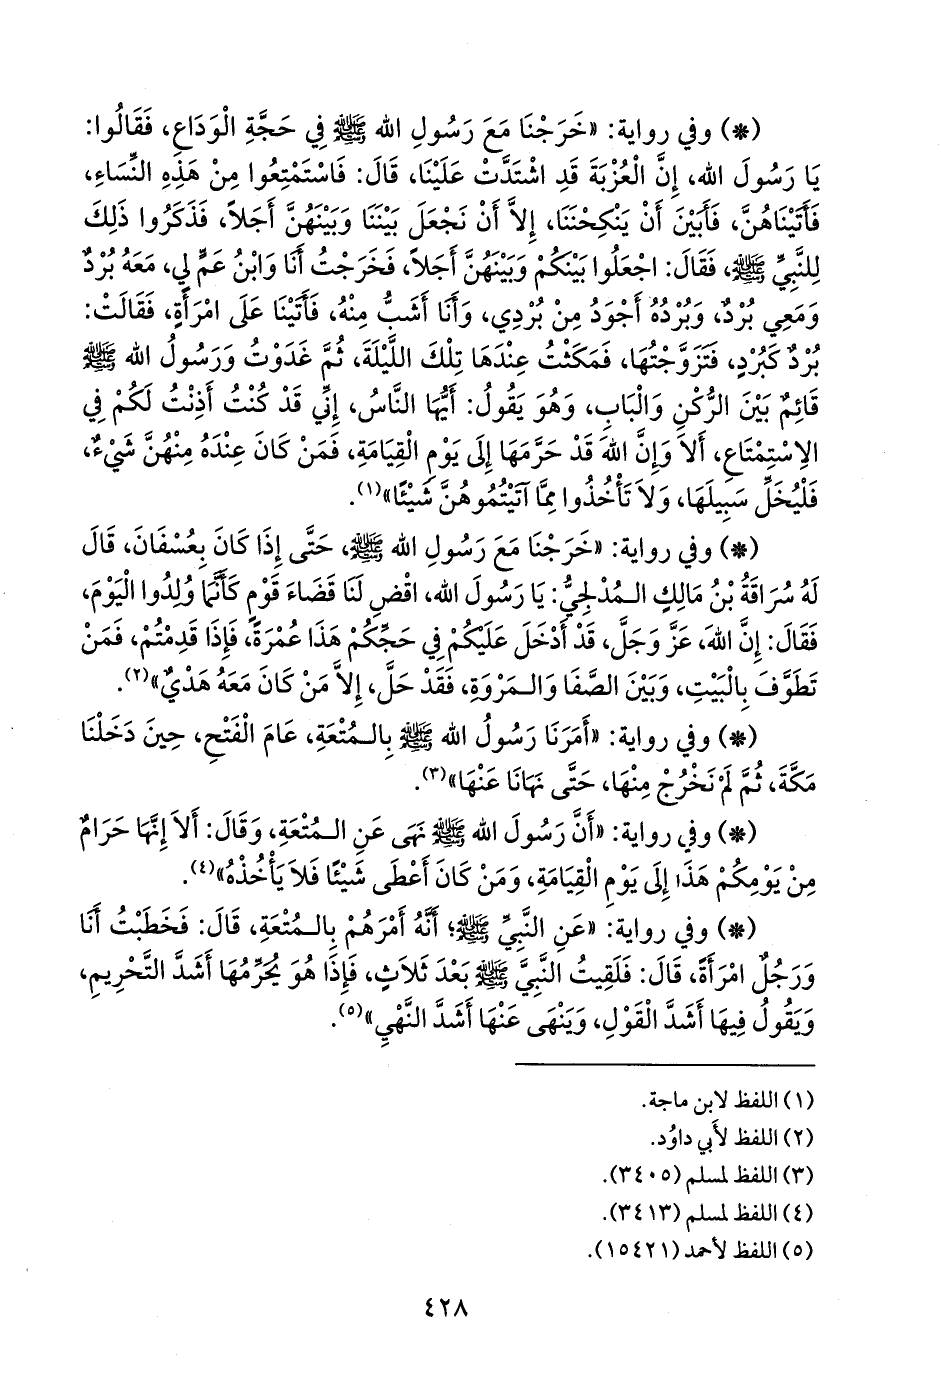 (*) وفي رواية: «خَرَجْنَا مَعَ رَسُولِ الله ﷺ فِي حَجَّةِ الْوَدَاعِ، فَقَالُوا:
يَا رَسُولَ الله، إِنَّ الْعُزْبَةَ قَدِ اشْتَدَّتْ عَلَيْنَا، قَالَ: فَاسْتَمْتِعُوا مِنْ هَذِهِ النِّسَاءِ،
فَأَتَيْنَاهُنَّ، فَأَبَيْنَ أَنْ يَنْكِحْنَنَا، إِلاَّ أَنْ نَجْعَلَ بَيْنَنَا وَبَيْنَهُنَّ أَجَلاً، فَذَكَرُوا ذَلِكَ
لِلنَّبِيِّ ﷺ، فَقَالَ: اجْعَلُوا بَيْنَكُمْ وَبَيْنَهُنَّ أَجَلاً، فَخَرَجْتُ أَنَا وَابْنُ عَمٍّ لِي، مَعَهُ بُرْدٌ
وَمَعِي بُرْدٌ، وَبُرْدُهُ أَجْوَدُ مِنْ بُرْدِي، وَأَنَا أَشَبُّ مِنْهُ، فَأَتَيْنَا عَلَى امْرَأَةٍ، فَقَالَتْ:
بُرْدٌ كَبُرْدٍ، فَتَزَوَّجْتُهَا، فَمَكَثْتُ عِنْدَهَا تِلْكَ اللَّيْلَةَ، ثُمَّ غَدَوْتُ وَرَسُولُ الله ﷺ
قَائِمٌ بَيْنَ الرُّكْنِ وَالْبَابِ، وَهُوَ يَقُولُ: أَيُّهَا النَّاسُ، إِنِّي قَدْ كُنْتُ أَذِنْتُ لَكُمْ فِي
الاِسْتِمْتَاعِ، أَلاَ وَإِنَّ اللهَ قَدْ حَرَّمَهَا إِلَى يَوْمِ الْقِيَامَةِ، فَمَنْ كَانَ عِنْدَهُ مِنْهُنَّ شَيْءٌ،
فَلْيُخَلِّ سَبِيلَهَا، وَلاَ تَأْخُذُوا مِمَّا آتَيْتُمُوهُنَّ شَيْئًا»(١).
(*) وفي رواية: «خَرَجْنَا مَعَ رَسُولِ الله ﷺ، حَتَّى إِذَا كَانَ بِعُسْفَانَ، قَالَ
لَهُ سُرَاقَةُ بْنُ مَالِكٍ الـمُدْلِجِيُّ: يَا رَسُولَ الله، اقْضِ لَنَا قَضَاءَ قَوْمٍ كَأَنَّمَا وُلِدُوا الْيَوْمَ،
فَقَالَ: إِنَّ اللهَ، عَزَّ وَجَلَّ، قَدْ أَدْخَلَ عَلَيْكُمْ فِي حَجِّكُمْ هَذَا عُمْرَةً، فَإِذَا قَدِمْتُمْ، فَمَنْ
تَطَوَّفَ بِالْبَيْتِ، وَبَيْنَ الصَّفَا وَالـمَرْوَةِ، فَقَدْ حَلَّ، إِلاَّ مَنْ كَانَ مَعَهُ هَدْيٌ»(٢).
(*) وفي رواية: «أَمَرَنَا رَسُولُ الله ﷺ بِالـمُتْعَةِ، عَامَ الْفَتْحِ، حِينَ دَخَلْنَا
مَكَّةَ، ثُمَّ لَمْ نَخْرُجْ مِنْهَا، حَتَّى نَهَانَا عَنْهَا»(٣).
(*) وفي رواية: «أَنَّ رَسُولَ الله ﷺ نَهَى عَنِ الـمُتْعَةِ، وَقَالَ: أَلاَ إِنَّهَا حَرَامٌ
مِنْ يَوْمِكُمْ هَذَا إِلَى يَوْمِ الْقِيَامَةِ، وَمَنْ كَانَ أَعْطَى شَيْئًا فَلاَ يَأْخُذْهُ»(٤).
(*) وفي رواية: «عَنِ النَّبِيِّ ﷺ؛ أَنَّهُ أَمْرَهُمْ بِالـمُتْعَةِ، قَالَ: فَخَطَبْتُ أَنَا
وَرَجُلٌ امْرَأَةً، قَالَ: فَلَقِيتُ النَّبِيَّ ﷺ بَعْدَ ثَلاَثٍ، فَإِذَا هُوَ يُحَرِّمُهَا أَشَدَّ التَّحْرِيمِ،
وَيَقُولُ فِيهَا أَشَدَّ الْقَوْلِ، وَيَنْهَى عَنْهَا أَشَدَّ النَّهْيِ»(٥).
(١) اللفظ لابن ماجة.
(٢) اللفظ لأَبي داوُد.
(٣) اللفظ لمسلم (٣٤٠٥).
(٤) اللفظ لمسلم (٣٤١٣).
(٥) اللفظ لأحمد (١٥٤٢١).
٤٢٨